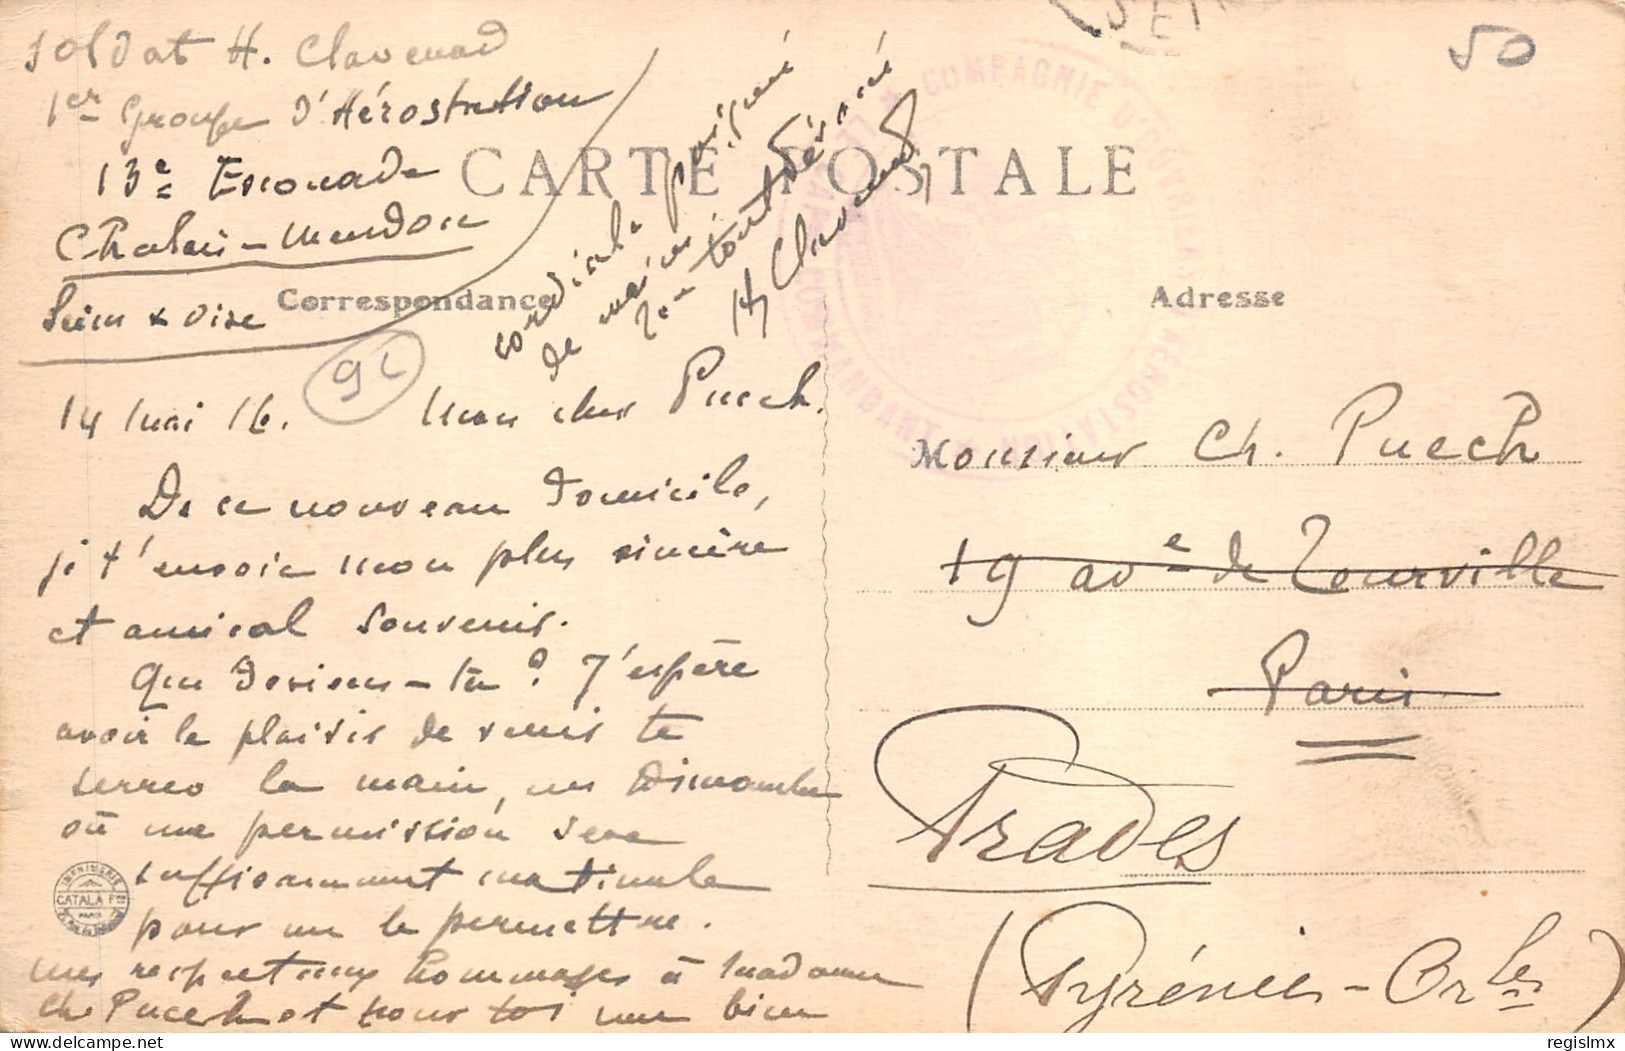 Soldat H. Clavenad
1er Groupe d'Aérostation
13e Escouade
Chalais-Meudon
Seine & Oise
50
CARTE POSTALE
Correspondance
Adresse
COMPAGNIE D'OUVRIERS AEROSTATIERS
COMMANDANT
92
14 mai 16. Mon cher Puech.
De ce nouveau domicile,
je t'envoie mon plus sincère
et amical souvenir.
Que deviens-tu ? J'espère
avoir le plaisir de venir te
serrer la main, un dimanche
où une permission sera
suffisamment matinale
pour me le permettre.
Mes respectueux hommages à Madame
Ch. Puech et pour toi une bien
cordiale poignée
de main.
Ton tout dévoué
H Clavenad
Monsieur Ch. Puech
19 ave de Tourville
Paris
Prades
(Pyrénées-Orles)
IMPRIMERIE
CATALA Fres
PARIS
regislmx